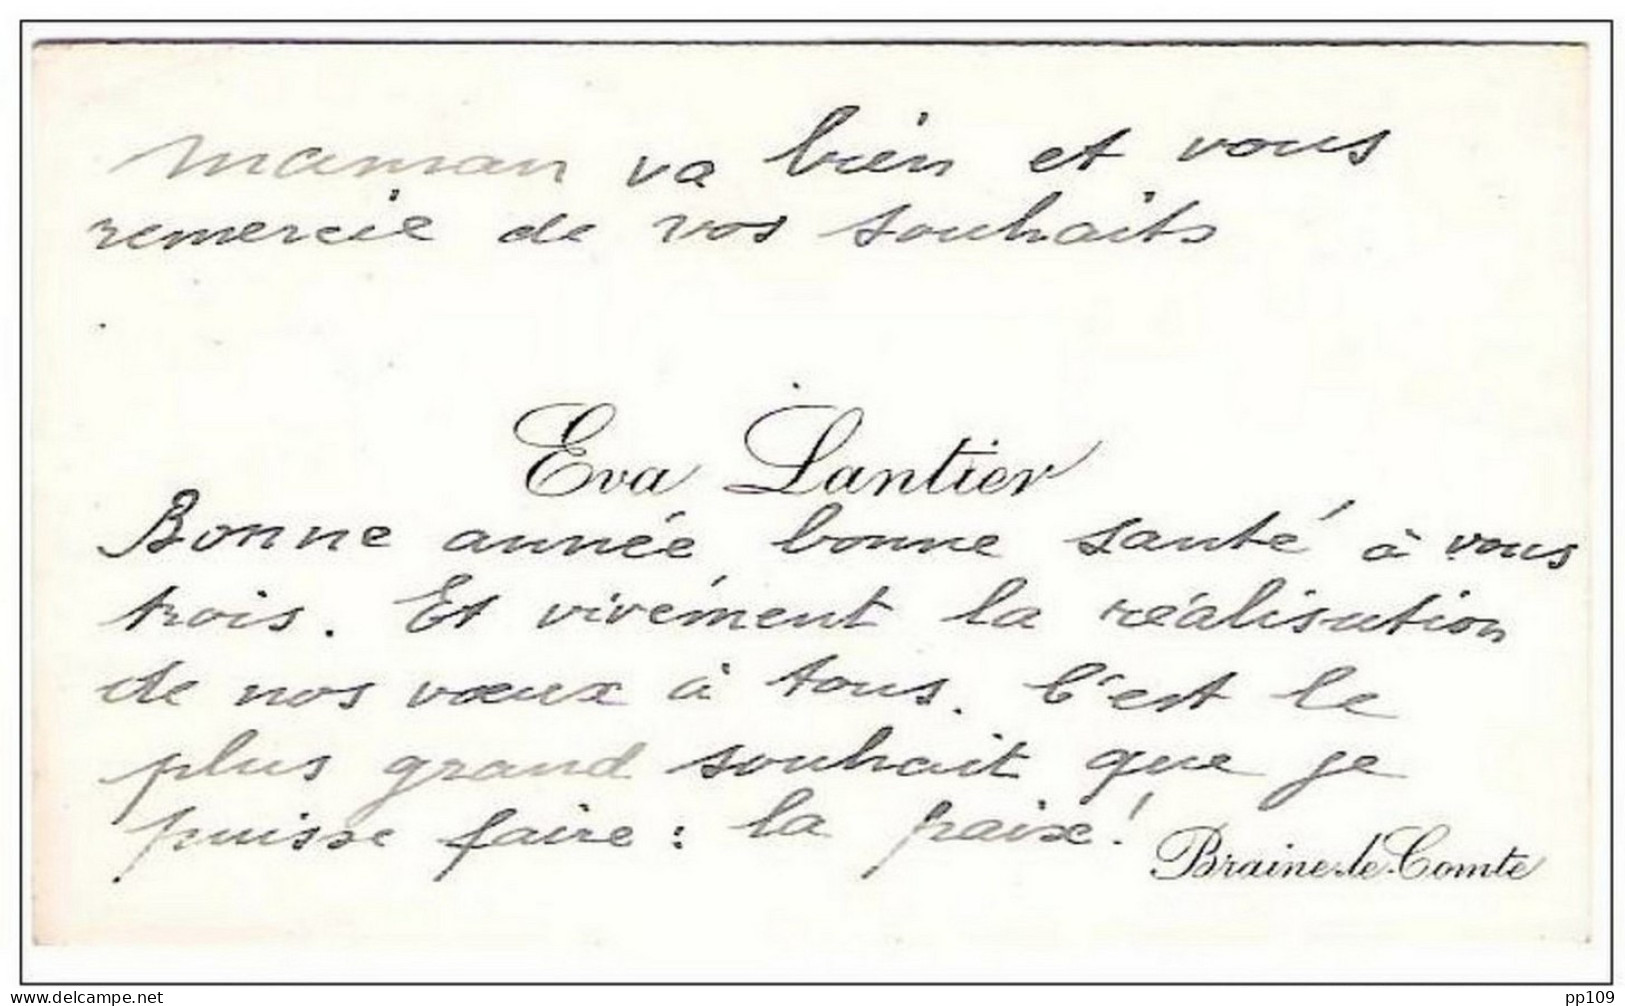 maman va bien et vous
remercie de vos souhaits
Eva Lantier
Bonne année bonne santé à vous
trois. Et vivement la réalisation
de nos vœux à tous. C'est le
plus grand souhait que je
puisse faire : la paix!
Braine-le-Comte
www.delcampe.net
pp109